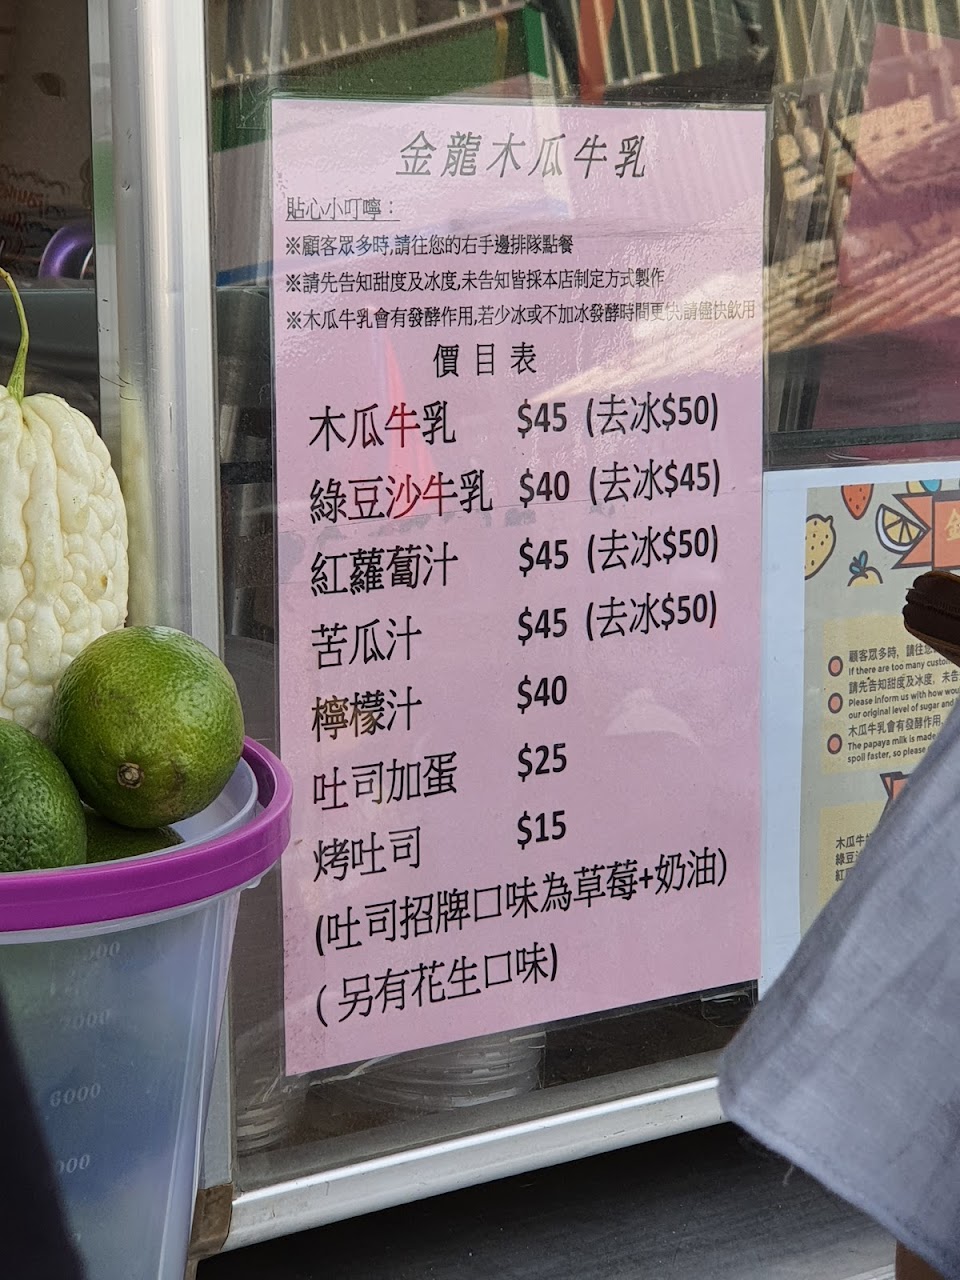 金龍木瓜牛乳
貼心小叮嚀：
※顧客眾多時,請往您的右手邊排隊點餐
※請先告知甜度及冰度,未告知皆採本店制定方式製作
※木瓜牛乳會有發酵作用,若少冰或不加冰發酵時間更快,請儘快飲用
價目表
木瓜牛乳 $45 (去冰$50)
綠豆沙牛乳 $40 (去冰$45)
紅蘿蔔汁 $45 (去冰$50)
苦瓜汁 $45 (去冰$50)
檸檬汁 $40
吐司加蛋 $25
烤吐司 $15
(吐司招牌口味為草莓+奶油)
(另有花生口味)
金
顧客眾多時, 請往
If there are too many
請先告知甜度及冰度, 未告
Please inform us with how
our original level of sugar and
木瓜牛乳會有發酵作用
The papaya milk is made
spoil faster, so please
木瓜牛
綠豆
紅
7000
6000